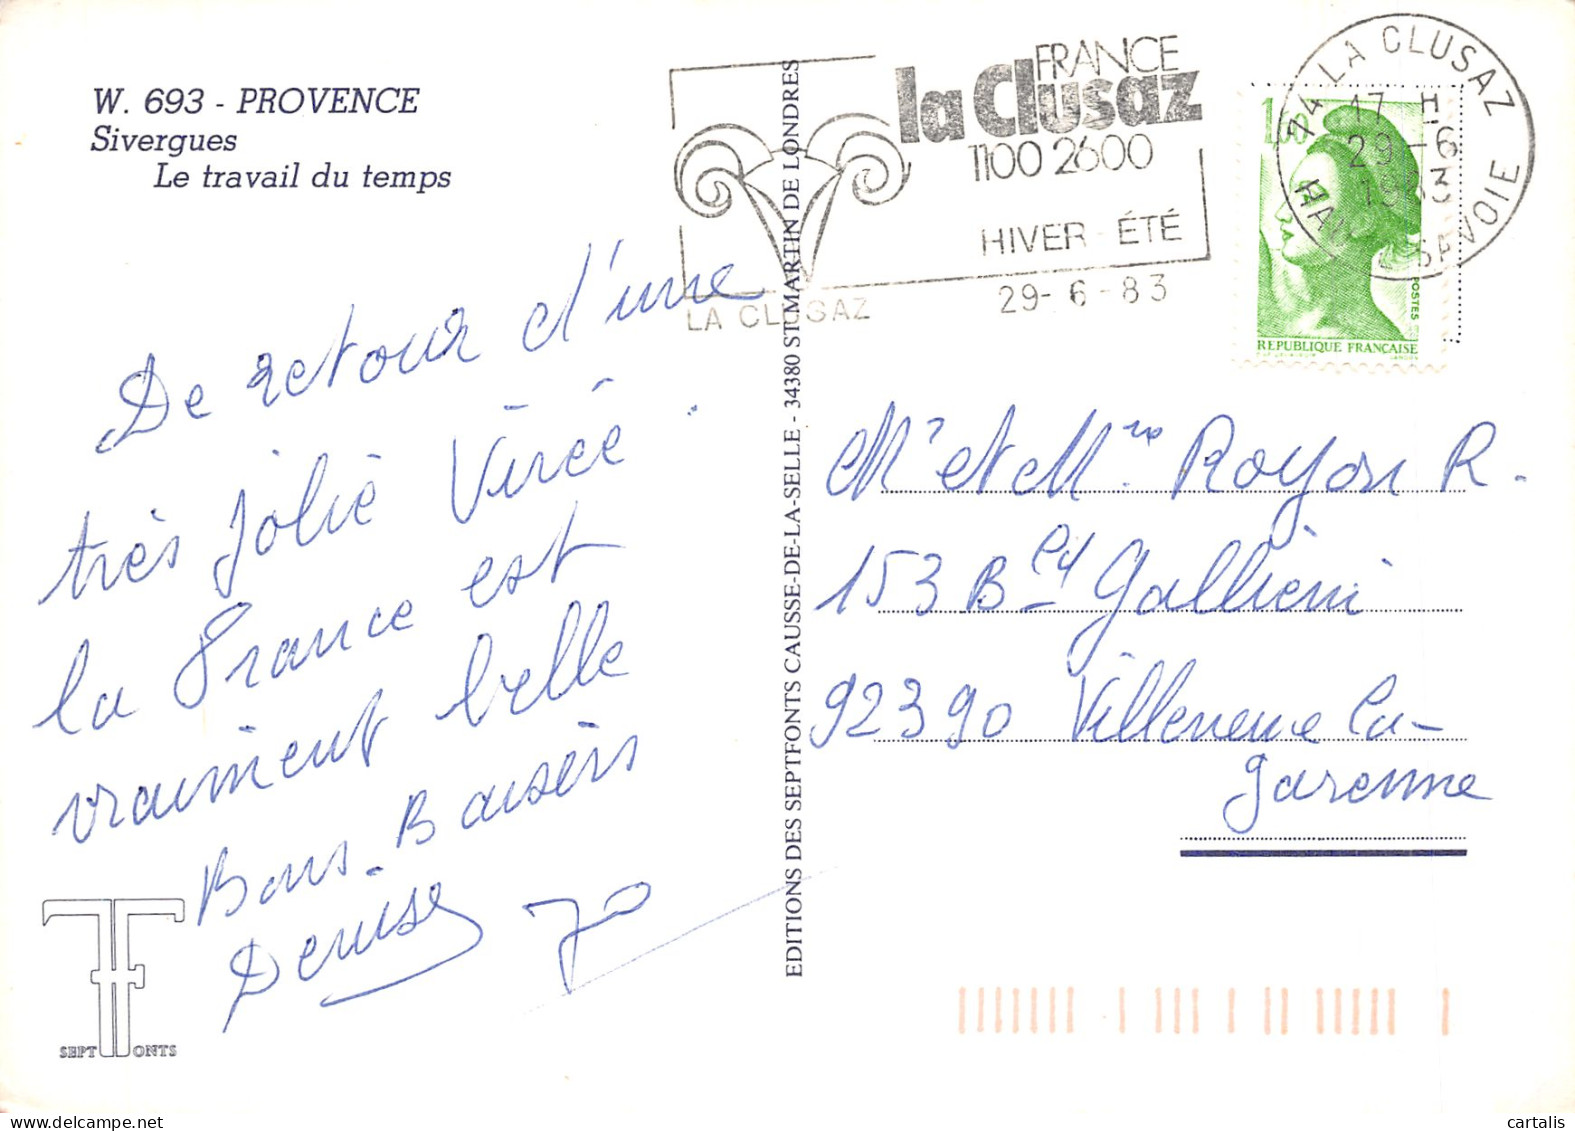 W. 693 - PROVENCE
Sivergues
Le travail du temps
De retour d'une
très jolie Virée.
la France est
vraiment belle
Bons-Baisers
Denise Jo
SEPT FONTS
EDITIONS DES SEPTFONTS CAUSSE-DE-LA-SELLE - 34380 ST MARTIN DE LONDRES
FRANCE
la Clusaz
1100 2600
HIVER ÉTÉ
LA CLUSAZ
29-6-83
74 LA CLUSAZ
17 H
29-6
1983
HAUTE SAVOIE
1,60
POSTES
REPUBLIQUE FRANÇAISE
Mr et Mme Royon R.
153 Bld Gallieni
92390 Villeneuve la-
garenne
cartalis